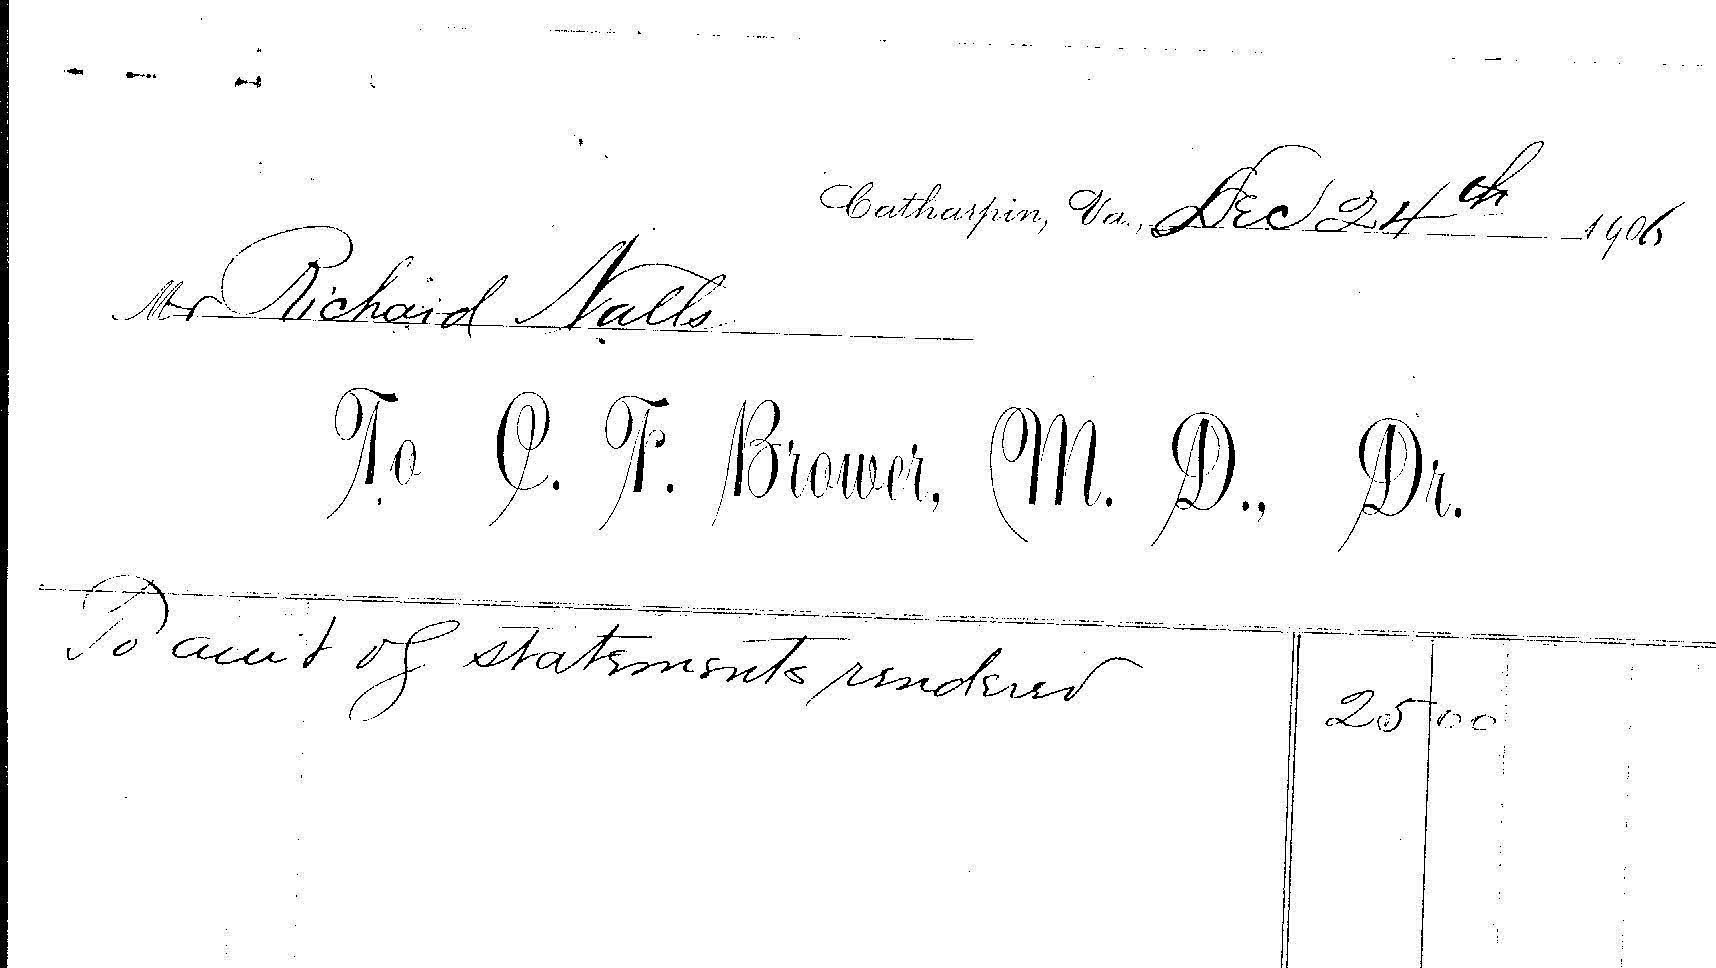 Catharpin, Va., Dec 24th 1906
Mr Richard Nalls
To C. F. Brower, M. D., Dr.
To am't of statements rendered 25 00